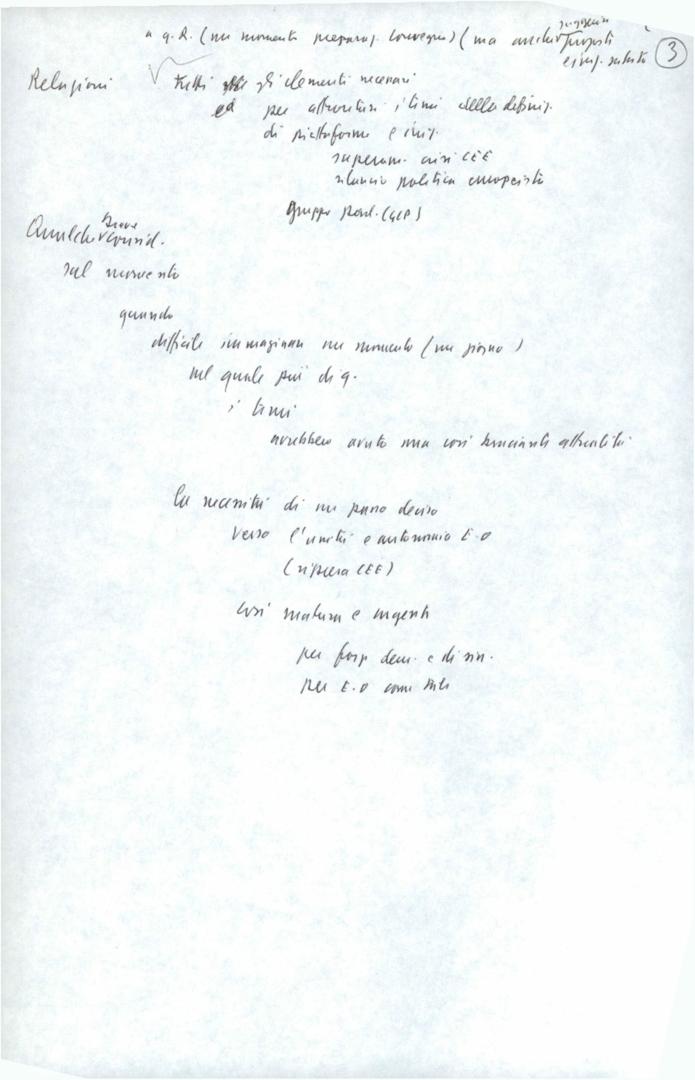 a q. R. (un momento preparaz. convegno) (ma anche proposte
e iniz. subito
3
Relazioni tutti gli elementi necessari
ed per affrontare i temi della definiz.
di piattaforme e iniz.
superam. crisi CEE
rilancio politica europeista
gruppo parl. (GCP)
Qualche breve consid.
sul momento
quando
difficile immaginare un momento (un giorno)
nel quale più di q.
i temi
avrebbero avuto una così bruciante attualità
la necessità di un passo deciso
verso l'unità e autonomia E.O
(ripresa CEE)
così matura e urgente
per forze dem. e di sin.
per E.O come tale